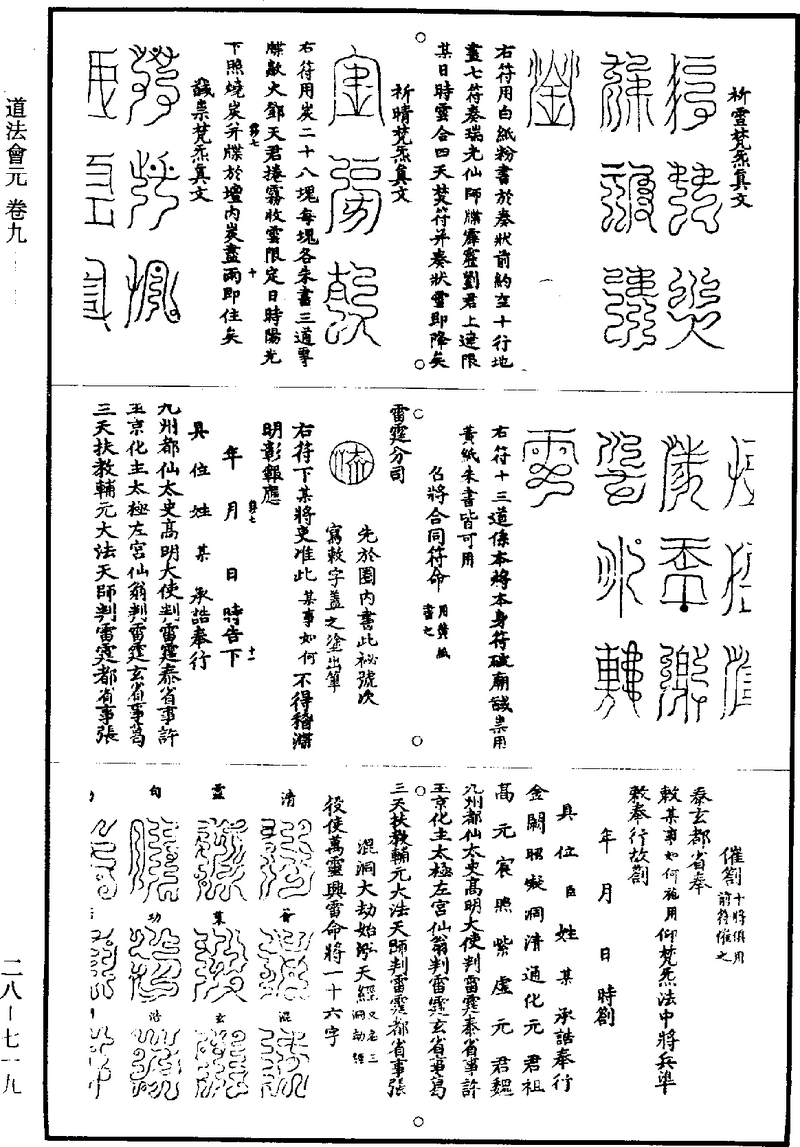 道法會元 卷九
二八—七一九
祈雪梵炁真文
右符用白紙粉書於奏狀前約空十行地
畫七符奏瑞光仙師牒霹靂劉君上達限
某日時雲合四天焚符并奏狀雪即降矣
祈晴梵炁真文
右符用炭二十八塊每塊各朱書三道專
牒歘火鄧天君捲霧收雲限定日時陽光
下照燒炭并牒於壇內炭盡兩即住矣
誠祟梵炁真文
右符十三道係本將本身符破廟誠祟用
黃紙朱書皆可用
召將合同符命 用黃紙書之
雷霆分司
先於圈內書此祕號次
寫敕字蓋之塗出單
右符下某將吏准此某事如何不得稽滯
明彰報應
年 月 日 時告下
具 位 姓 某 承誥奉行
九州都仙太史高明大使判雷霆泰省事許
玉京化主太極左宮仙翁判雷霆玄省事葛
三天扶教輔元大法天師判雷霆都省事張
催劄 十將俱用前符催之
泰玄都省奉
敕某事如何施用仰梵炁法中將兵準
敕奉行故劄
年 月 日 時劄
具 位 臣 姓 某 承誥奉行
金闕昭凝洞清通化元君祖
高元宸照紫虛元君魏
九州都仙太史高明大使判雷霆泰省事許
玉京化主太極左宮仙翁判雷霆玄省事葛
三天扶教輔元大法天師判雷霆都省事張
混洞大劫始
天經 又名三洞劫經
役使萬靈興雷命將一十六字
清
靈
句
功
浩
玄
混